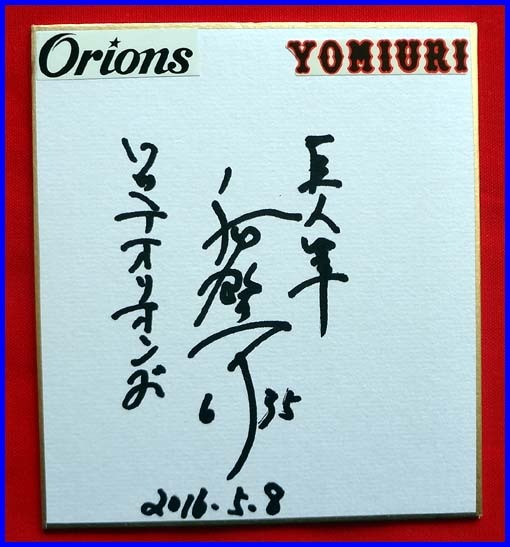 Orions
YOMIURI
巨人軍
千田啓介
6 35
ロッテオリオンズ
2016.5.8